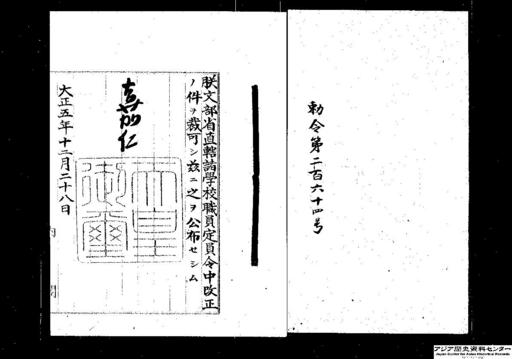 勅令第二百六十四号
朕文部省直轄諸学校職員定員令中改正
ノ件ヲ裁可シ玆ニ之ヲ公布セシム
嘉仁
天皇御璽
大正五年十二月二十八日
内閣
アジア歴史資料センター
Japan Center for Asian Historical Records